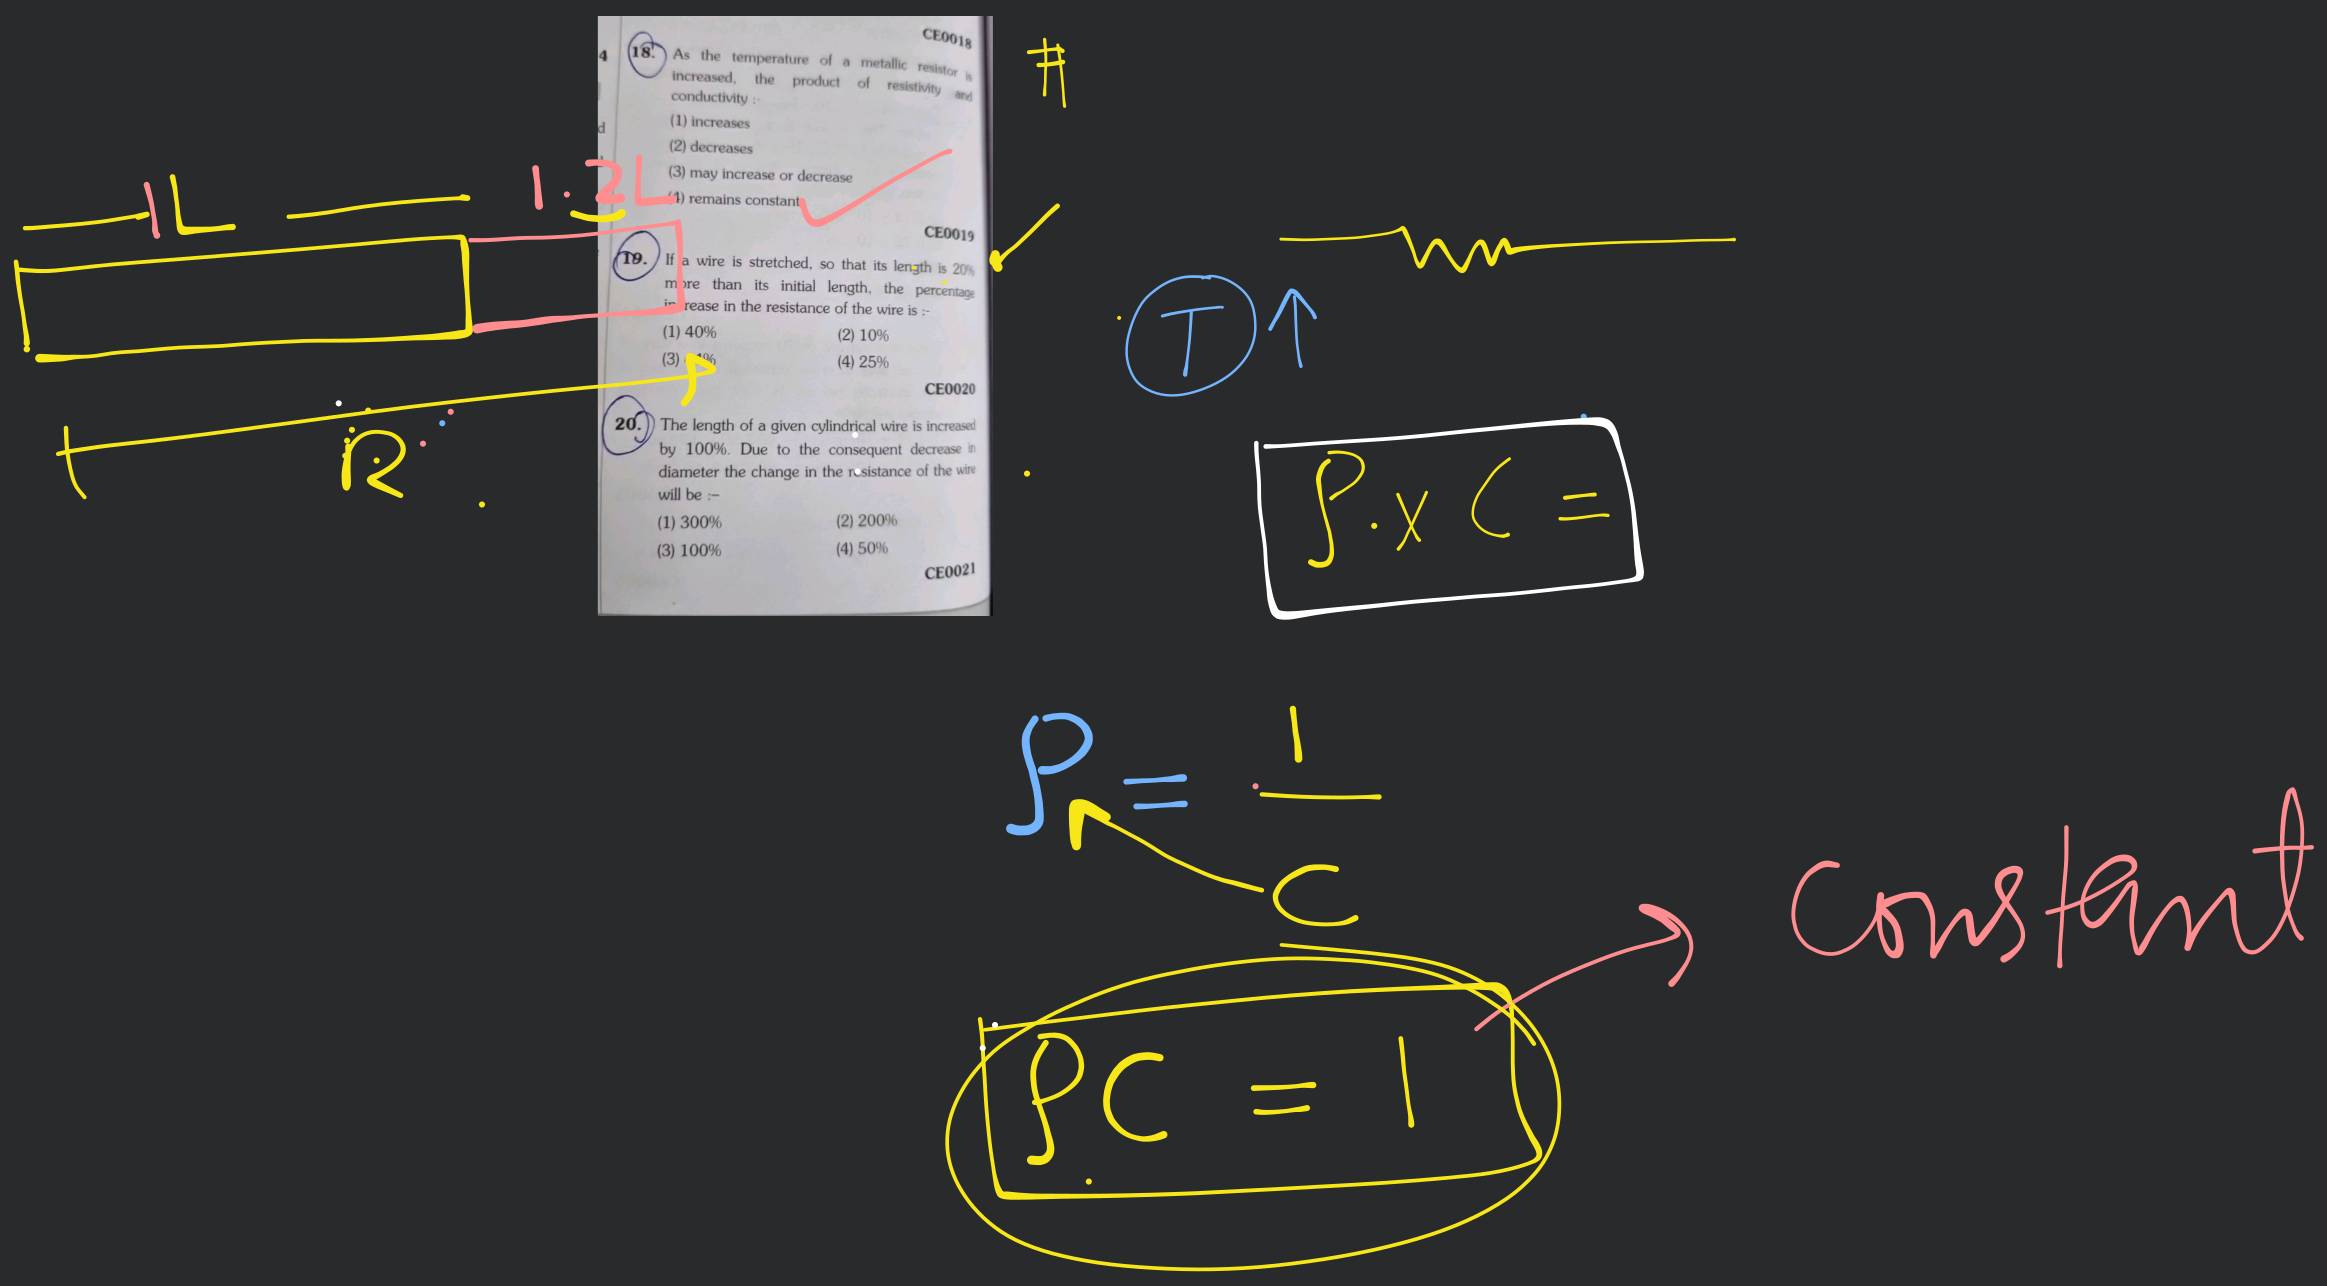 CE0018
4
18. As the temperature of a metallic resistor is
increased, the product of resistivity and
conductivity :-
(1) increases
d
(2) decreases
(3) may increase or decrease
(4) remains constant
CE0019
19. If a wire is stretched, so that its length is 20%
more than its initial length, the percentage
increase in the resistance of the wire is :-
(1) 40% (2) 10%
(3) (4) 25%
CE0020
20. The length of a given cylindrical wire is increased
by 100%. Due to the consequent decrease in
diameter the change in the resistance of the wire
will be :-
(1) 300% (2) 200%
(3) 100% (4) 50%
CE0021
#
L
1.2L
R
T ↑
ρ . x C =
ρ = 1
C
ρC = 1
constant